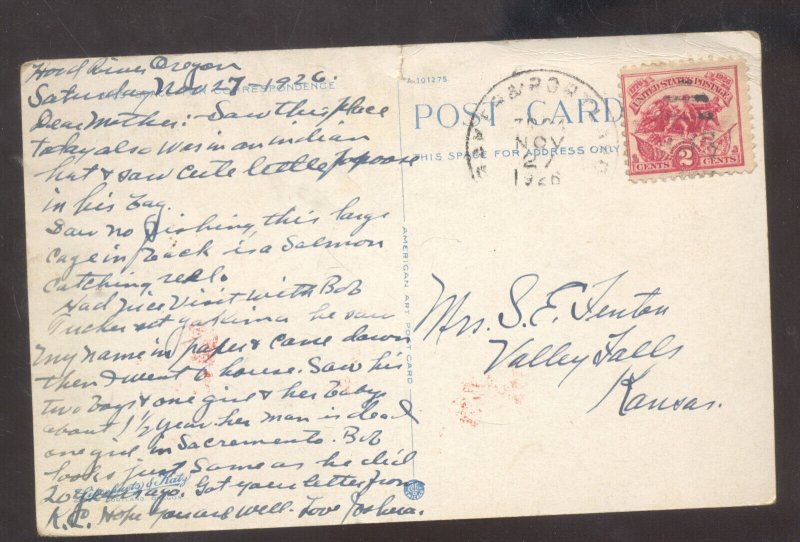 Hood River Oregon
Saturday Nov 27-1926.
CORRESPONDENCE
Dear Mother: Saw this place
Today also was in an Indian
hut & saw cute little papoose
in his bag.
Saw no fishing, this large
cage in back is a Salmon
catching reel.
Had nice visit with Bob
Tucker at Yakima he saw
my name in paper & came down
then I went to house. Saw his
two boys & one girl & her baby
about 1½ year her man is dead
one girl in Sacramento. Bob
looks just same as he did
20 years ago. Got your letter from
K.C. Hope you are well. Love Joshua.
A-101275
POST CARD
THIS SPACE FOR ADDRESS ONLY
AMERICAN ART POST CARD
NOV
27
1926
UNITED STATES POSTAGE
2
CENTS CENTS
Mrs. S. E. Fenton
Valley Falls
Kansas.